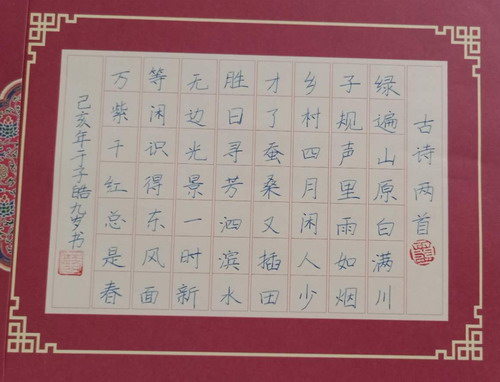 古诗两首
绿遍山原白满川
子规声里雨如烟
乡村四月闲人少
才了蚕桑又插田
胜日寻芳泗滨水
无边光景一时新
等闲识得东风面
万紫千红总是春
己亥年于子皓九岁书